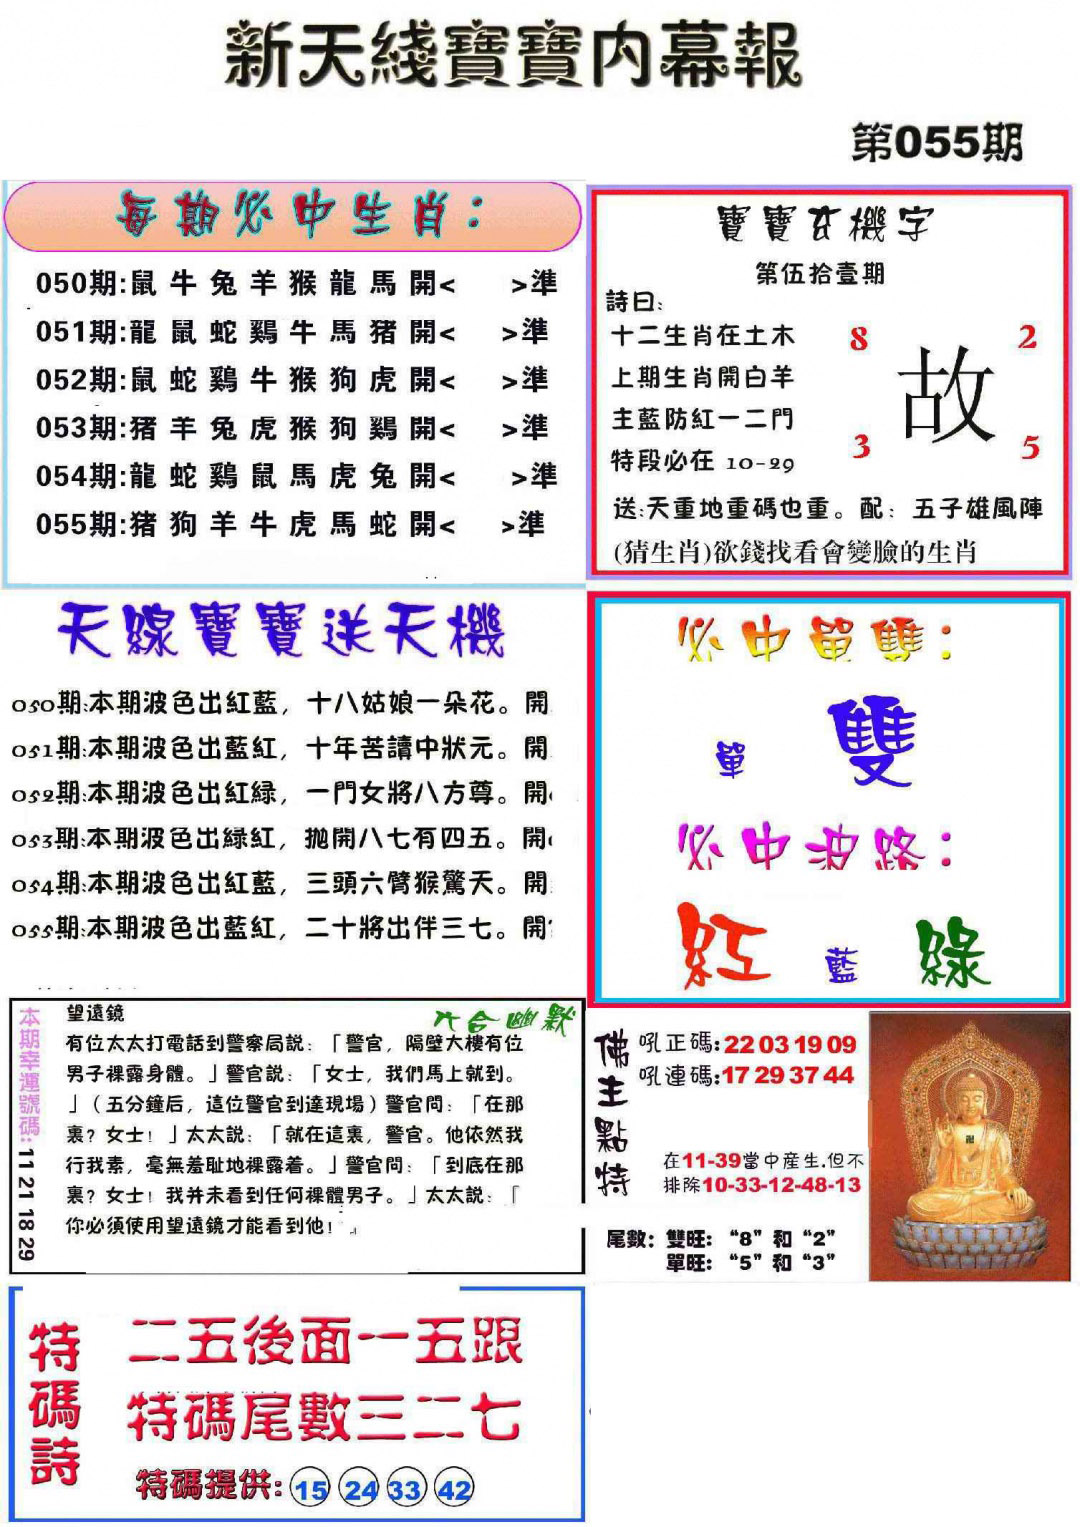 新天綫寶寶内幕報
第055期
每期必中生肖：
050期:鼠牛兔羊猴龍馬開< >準
051期:龍鼠蛇鷄牛馬猪開< >準
052期:鼠蛇鷄牛猴狗虎開< >準
053期:猪羊兔虎猴狗鷄開< >準
054期:龍蛇鷄鼠馬虎兔開< >準
055期:猪狗羊牛虎馬蛇開< >準
寶寶玄機字
第伍拾壹期
詩曰:
十二生肖在土木
上期生肖開白羊
主藍防紅一二門
特段必在 10-29
8
2
故
3
5
送:天重地重碼也重。配：五子雄風陣
(猜生肖)欲錢找看會變臉的生肖
天線寶寶送天機
050期:本期波色出紅藍，十八姑娘一朵花。開
051期:本期波色出藍紅，十年苦讀中狀元。開
052期:本期波色出紅緑，一門女將八方尊。開
053期:本期波色出緑紅，拋開八七有四五。開
054期:本期波色出紅藍，三頭六臂猴驚天。開
055期:本期波色出藍紅，二十將出伴三七。開
必中單雙：
單 雙
必中波路：
紅 藍 綠
本期幸運號碼: 11 21 18 29
六合幽默
望遠鏡
有位太太打電話到警察局説：「警官，隔壁大樓有位
男子裸露身體。」警官説：「女士，我們馬上就到。
」（五分鐘后，這位警官到達現場）警官問：「在那
裏？女士！」太太説：「就在這裏，警官。他依然我
行我素，毫無羞耻地裸露着。」警官問：「到底在那
裏？女士！我并未看到任何裸體男子。」太太説：「
你必須使用望遠鏡才能看到他！』
佛主點特
吼正碼:22 03 19 09
吼連碼:17 29 37 44
在11-39當中産生.但不
排除10-33-12-48-13
尾數：雙旺：“8”和“2”
單旺：“5”和“3”
特碼詩
二五後面一五跟
特碼尾數三二七
特碼提供: 15 24 33 42